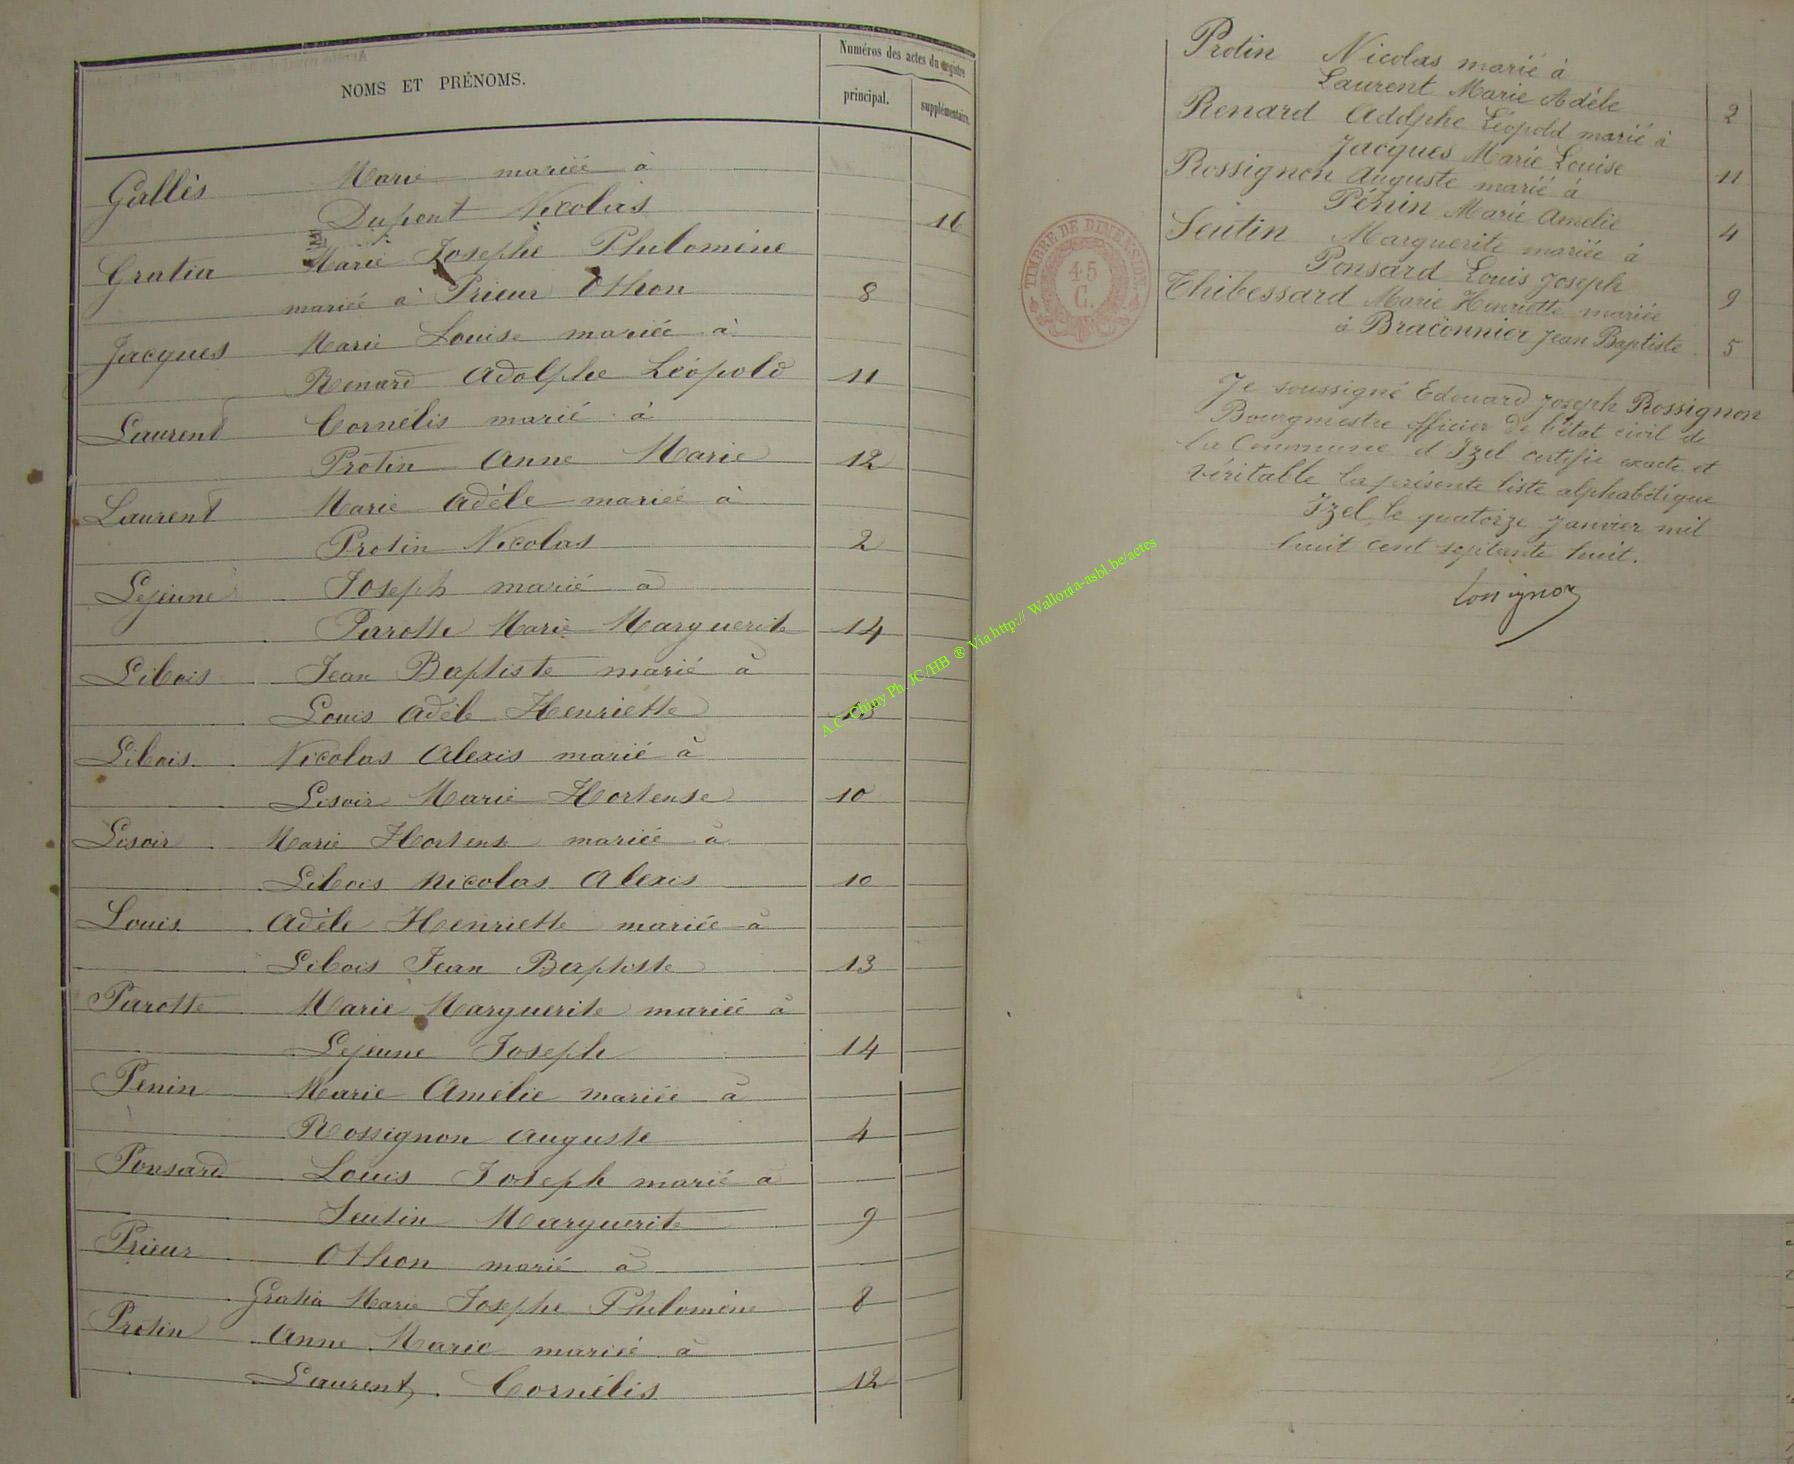 NOMS ET PRÉNOMS.
Numéros des actes du registre
principal.
supplémentaire.
Gallès Marie mariée à
Dupont Nicolas 16
Gratia Marie Josephe Philomène
mariée à Prieur Othon 8
Jacques Marie Louise mariée à
Renard Adolphe Léopold 11
Laurent Cornélis marié à
Protin Anne Marie 12
Laurent Marie Adèle mariée à
Protin Nicolas 2
Lejeune Joseph marié à
Parotte Marie Marguerite 14
Libois Jean Baptiste marié à
Louis Adèle Henriette 13
Libois Nicolas Alexis marié à
Lisoir Marie Hortense 10
Lisoir Marie Hortense mariée à
Libois Nicolas Alexis 10
Louis Adèle Henriette mariée à
Libois Jean Baptiste 13
Parotte Marie Marguerite mariée à
Lejeune Joseph 14
Penin Marie Amélie mariée à
Rossignon Auguste 4
Ponsard Louis Joseph marié à
Seutin Marguerite 9
Prieur Othon marié à
Gratia Marie Josephe Philomène 8
Protin Anne Marie mariée à
Laurent Cornélis 12
Protin Nicolas marié à
Laurent Marie Adèle 2
Renard Adolphe Léopold marié à
Jacques Marie Louise 11
Rossignon Auguste marié à
Pénin Marie Amelie 4
Seutin Marguerite mariée à
Ponsard Louis Joseph 9
Thibessard Marie Henriette mariée
à Braconnier Jean Baptiste 5
TIMBRE DE DIMENSION
45
C.
Je soussigné Edouard Joseph Rossignon
Bourgmestre officier de l'état civil de
la Commune d'Izel certifie exacte et
véritable la présente liste alphabétique
Izel, le quatorze janvier mil
huit cent septante huit.
Rossignon
A.C. Chiny Ph. JC/HB ® Via http:// Wallonia-asbl.be/actes